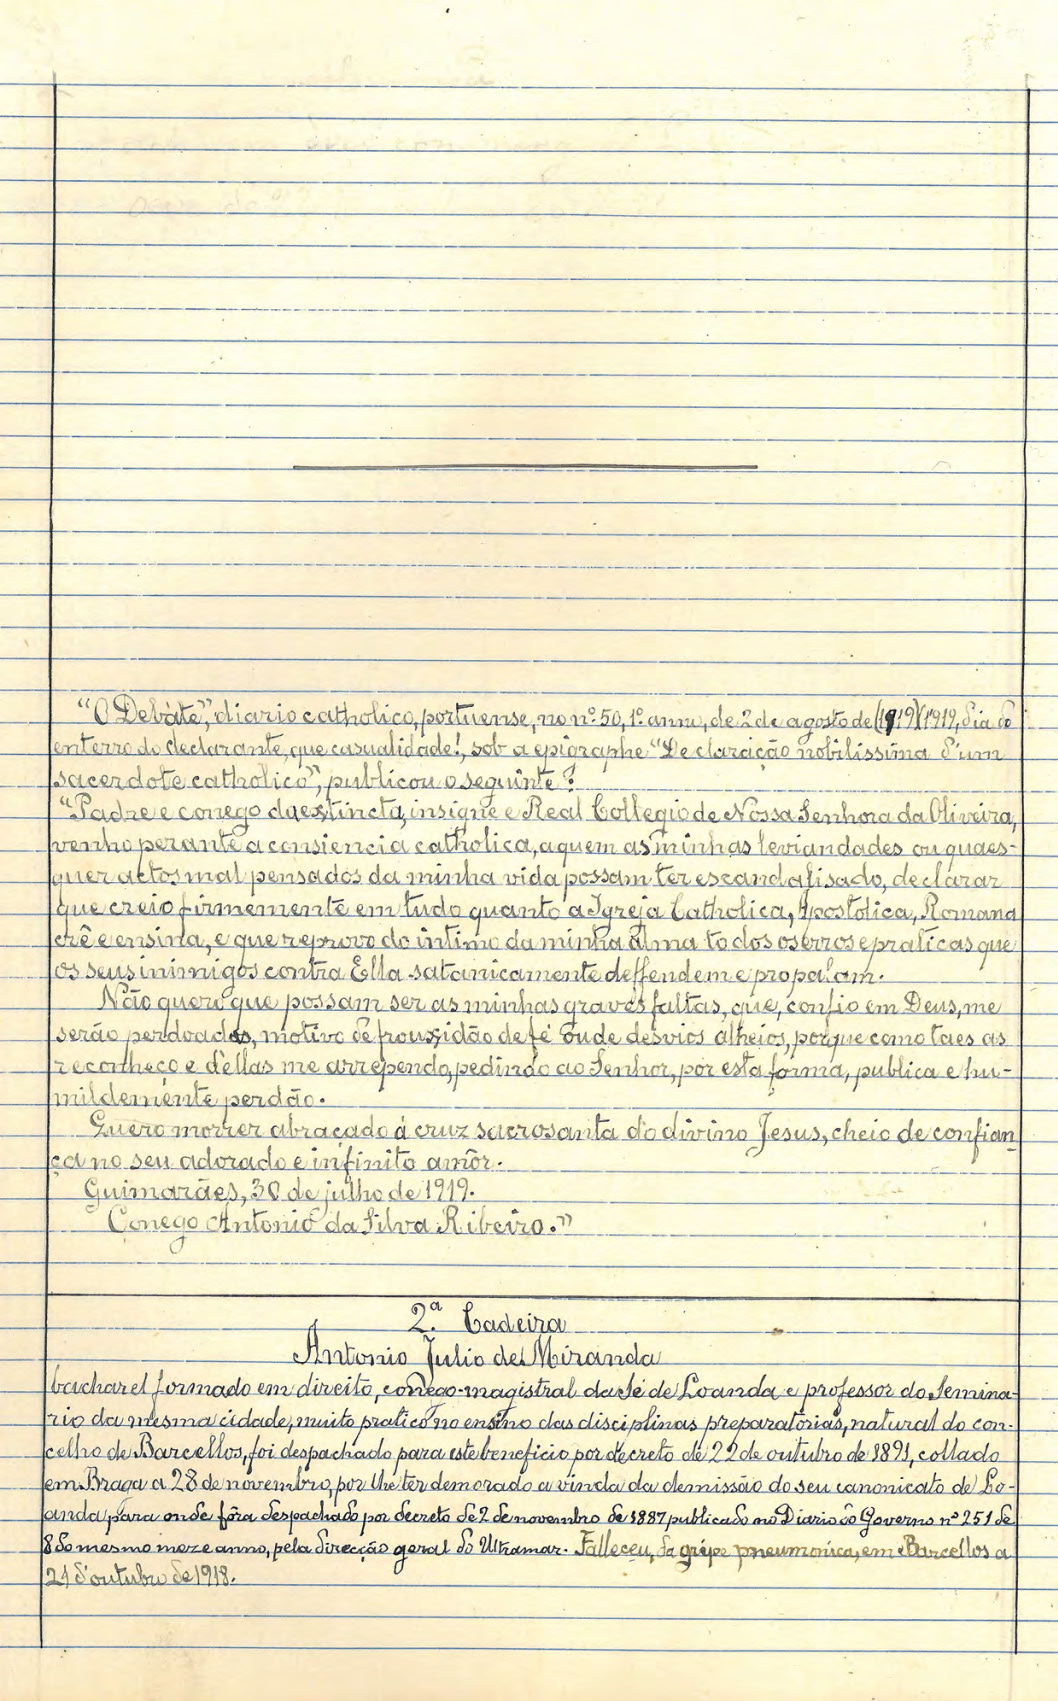 "O Debate", diario catholico, portuense, no nº 50, 1º anno, de 2 de agosto de (1919)(1919, dia do
enterro do declarante, que casualidade!, sob a epigraphe "Declaração nobilissima d'um
sacerdote catholico", publicou o seguinte:
"Padre e conego da extincta, insigne e Real Collegio de Nossa Senhora da Oliveira,
venho perante a consiencia catholica, a quem as minhas leviandades ou quaes-
quer actos mal pensados da minha vida possam ter escandalisado, declarar
que creio firmemente em tudo quanto a Igreja Catholica, Apostolica, Romana
crê e ensina, e que reprovo do intimo da minha alma todos os erros e praticas que
os seus inimigos contra Ella satanicamente deffendem e propalam.
Não quero que possam ser as minhas graves faltas, que, confio em Deus, me
serão perdoadas, motivo de frouxidão de fé ou de desvios alheios, porque como taes as
reconheço e d'ellas me arrependo, pedindo ao Senhor, por esta forma, publica e hu-
mildemente perdão.
Quero morrer abraçado á cruz sacrosanta do divino Jesus, cheio de confian
ça no seu adorado e infinito amôr.
Guimarães, 30 de julho de 1919.
Conego Antonio da Silva Ribeiro."
2.ª Cadeira
Antonio Julio de Miranda
bacharel formado em direito, conego-magistral da Sé de Loanda e professor do Semina-
rio da mesma cidade, muito pratico no ensino das disciplinas preparatórias, natural do con-
celho de Barcellos, foi despachado para este beneficio por decreto de 22 de outubro de 1891, collado
em Braga a 28 de novembro, por lhe ter demorado a vinda da demissão do seu canonicato de Lo-
anda, para onde fôra despachado por decreto de 2 de novembro de 1887 publicado no Diario do Governo nº 251 de
8 do mesmo mez e anno, pela direcção geral do Ultramar. Falleceu, da gripe pneumonica, em Barcellos a
21 d'outubro de 1918.